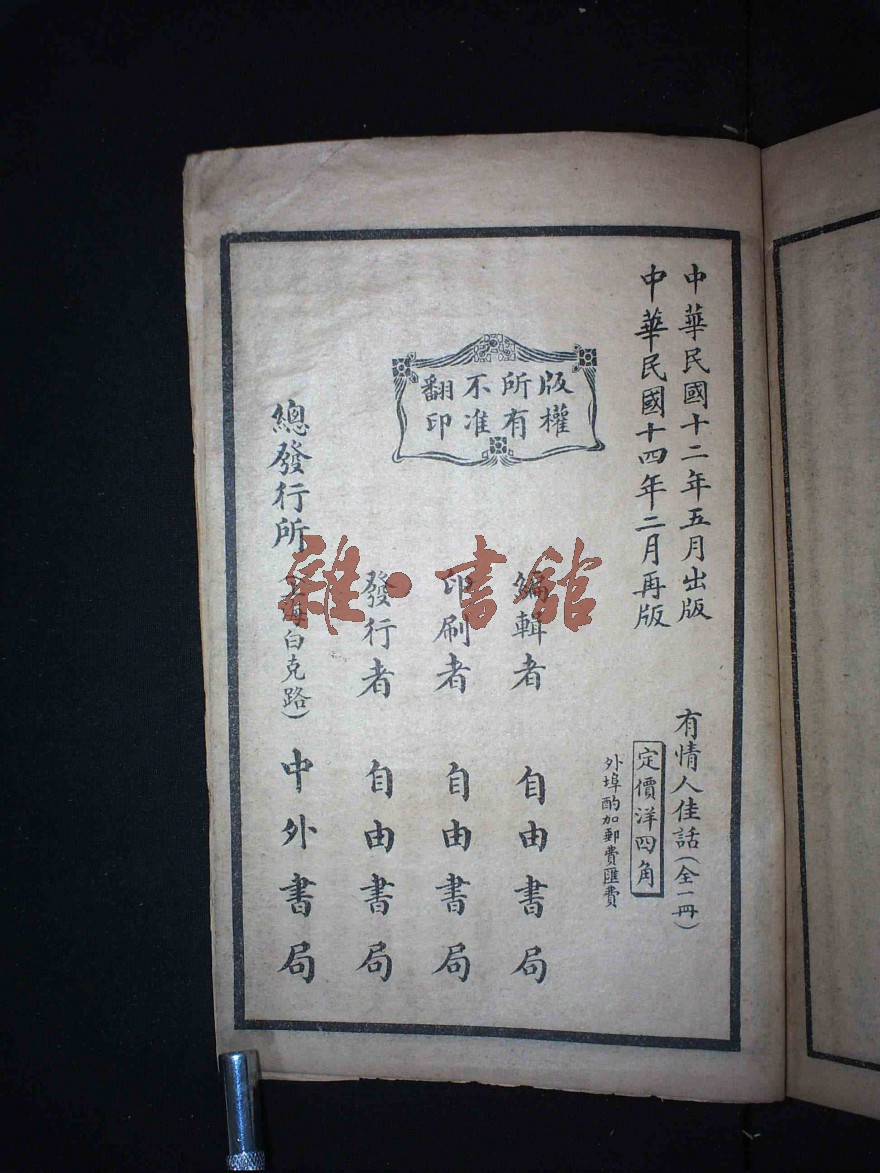 中華民國十二年五月出版
中華民國十四年二月再版
有情人佳話(全一冊)
定價洋四角
外埠酌加郵費匯費
版權所有不准翻印
編輯者 自由書局
印刷者 自由書局
發行者 自由書局
總發行所(上海白克路)中外書局
雜·書館